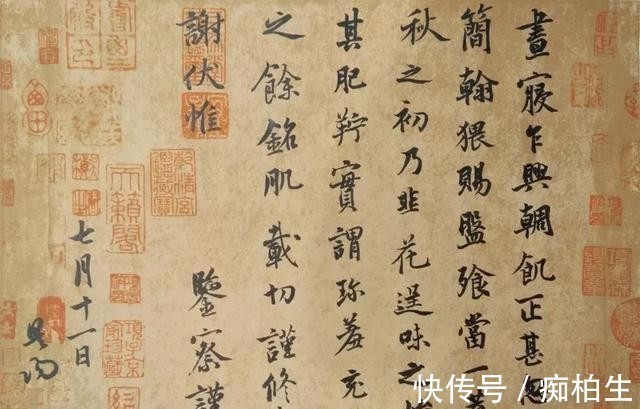 晝寢乍興輖飢正甚
簡翰猥賜盤飧當一
秋之初乃韭花逞味之
其肥羜實謂珍羞充
之餘銘肌載切謹修
謝伏惟
鑒察謹
七月十一日
天籟閣
快传号 / 痴柏生